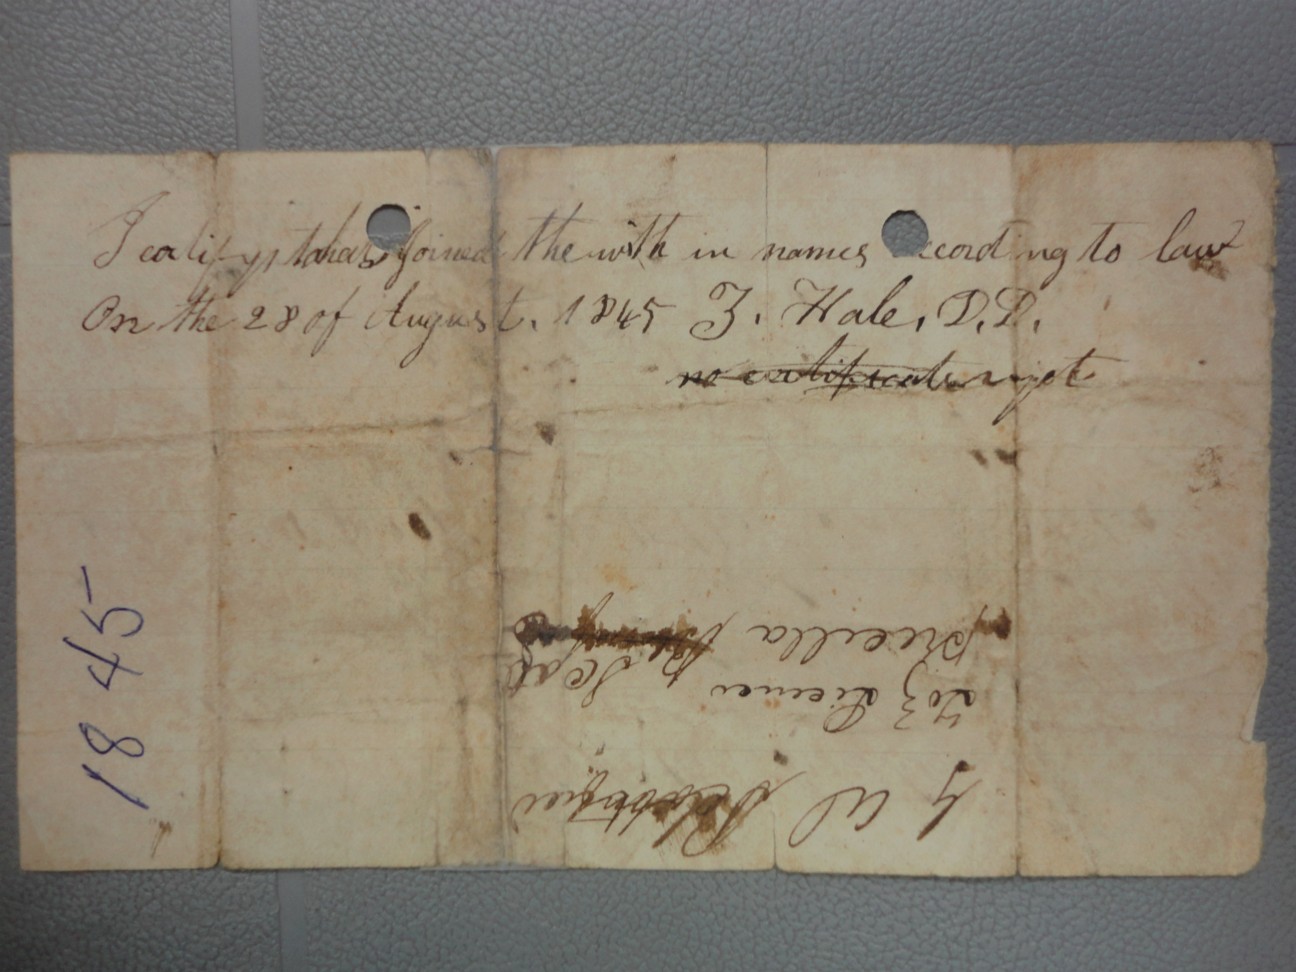 I certify that I joined the with in names according to law
On the 28 of August. 1845 Z. Hale. D.D.
no certificate yet
1845
G W
To } Licence
Pricilla
Seal